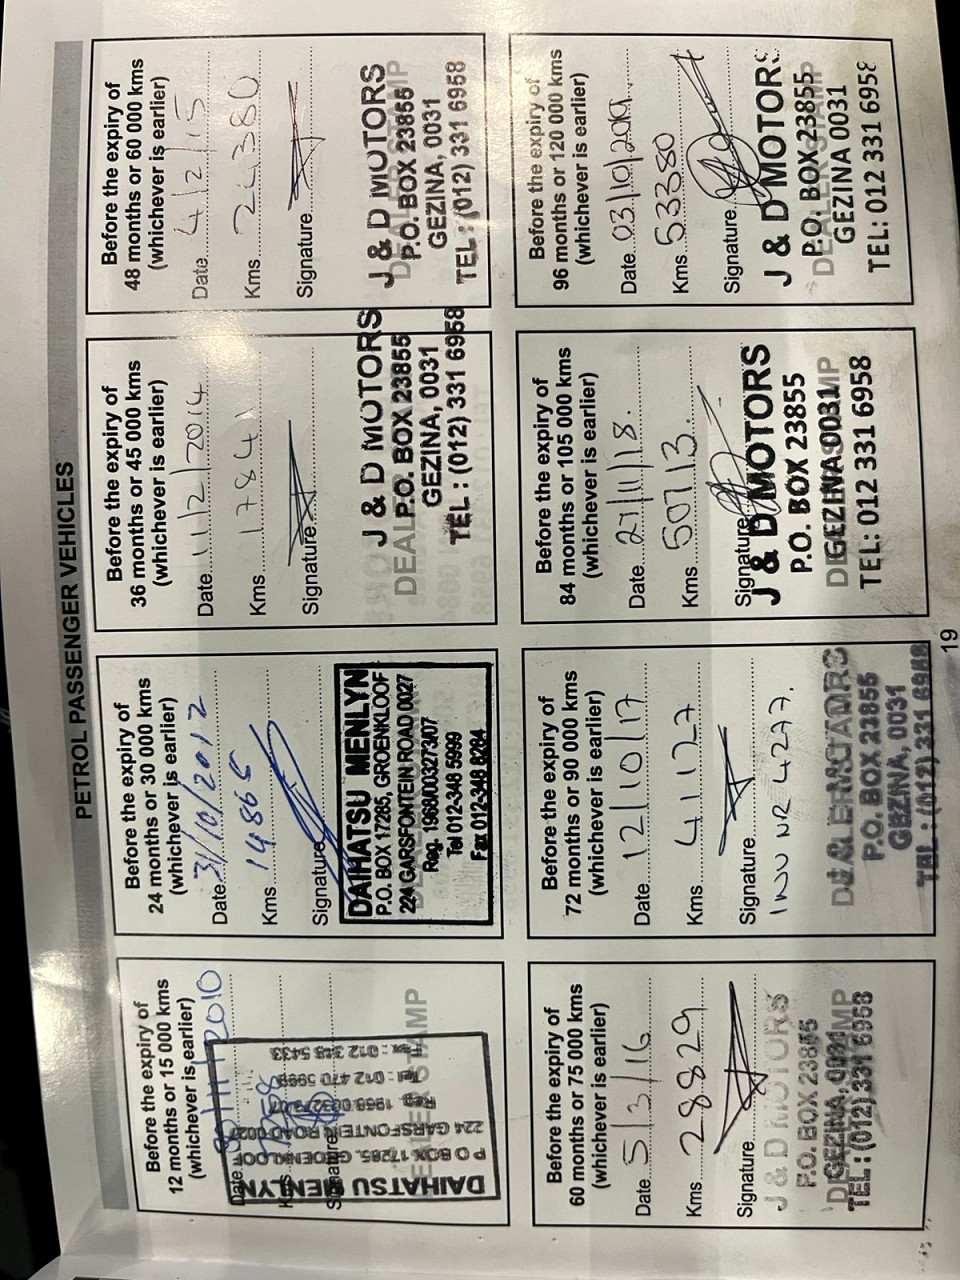 PETROL PASSENGER VEHICLES
Before the expiry of
12 months or 15 000 kms
(whichever is earlier)
Date
2010
Kms
Signature
DEALER STAMP
DAIHATSU MENLYN
P O BOX 17285, GROENKLOOF
224 GARSFONTEIN ROAD 0027
Reg. 1968/003273/07
Tel: 012 470 5999
Fax: 012 348 5433
Before the expiry of
24 months or 30 000 kms
(whichever is earlier)
Date 31/10/2012
Kms 14865
Signature
DAIHATSU MENLYN
P.O. BOX 17285, GROENKLOOF
224 GARSFONTEIN ROAD 0027
Reg. 1968/003273/07
Tel 012-348 5999
Fax 012-348 8284
Before the expiry of
36 months or 45 000 kms
(whichever is earlier)
Date 11/2/2014
Kms 17841
Signature
J & D MOTORS
DEALER
P.O. BOX 23855
GEZINA, 0031
TEL : (012) 331 6958
Before the expiry of
48 months or 60 000 kms
(whichever is earlier)
Date 4/2/15
Kms 24380
Signature
J & D MOTORS
DEALER STAMP
P.O. BOX 23855
GEZINA, 0031
TEL : (012) 331 6958
Before the expiry of
60 months or 75 000 kms
(whichever is earlier)
Date 5/3/16
Kms 28829
Signature
J & D MOTORS
P.O. BOX 23855
DEALER STAMP
GEZINA, 0031
TEL : (012) 331 6958
Before the expiry of
72 months or 90 000 kms
(whichever is earlier)
Date 12/10/17
Kms 41127
Signature
INV NR 4277.
P.O. BOX 23855
GEZINA, 0031
TEL : (012) 331 6958
Before the expiry of
84 months or 105 000 kms
(whichever is earlier)
Date 27/11/18.
Kms 50713.
Signature
J & D MOTORS
P.O. BOX 23855
GEZINA 0031
TEL: 012 331 6958
Before the expiry of
96 months or 120 000 kms
(whichever is earlier)
Date 03/10/2019
Kms 53380
Signature
J & D MOTORS
P.O. BOX 23855
DEALER STAMP
GEZINA 0031
TEL: 012 331 6958
19